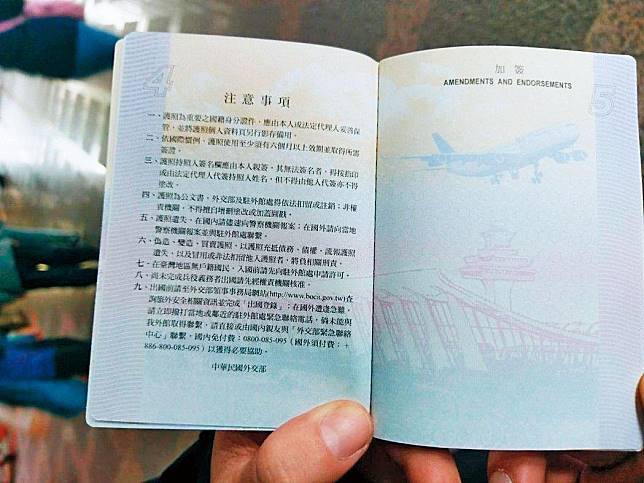 4
注意事項
一、護照為重要之國籍身分證件，應由本人或法定代理人妥善保
管，並將護照個人資料頁另行影存備用。
二、依國際慣例，護照使用至少須有六個月以上效期並取得所需
簽證。
三、護照持照人簽名欄應由本人親簽，其無法簽名者，得按指印
或由法定代理人代簽持照人姓名，但不得由他人代簽亦不得
塗改。
四、護照為公文書，外交部及駐外館處得依法扣留或註銷；非權
責機關，不得擅自增刪塗改或加蓋圖戳。
五、護照遺失，在國內請儘速向警察機關報案；在國外請向當地
警察機關報案並與駐外館處聯繫。
六、偽造、變造、買賣護照，以護照充抵債務、債權，謊報護照
遺失，以及冒用或非法扣留他人護照者，將負相關刑責。
七、在臺灣地區無戶籍國民，入國前請先向駐外館處申請許可。
八、尚未完成兵役義務者出國請先經權責機關核准。
九、出國前請至外交部領事事務局網站(http://www.boca.gov.tw)查
詢旅外安全相關資訊並完成「出國登錄」；在國外遭逢急難，
請立即撥打當地或鄰近的駐外館處緊急聯絡電話，倘未能與
我外館取得聯繫，請直接或由國內親友與「外交部緊急聯絡
中心」聯繫，國內免付費：0800-085-095（國外須付費：+
886-800-085-095）以獲得必要協助。
中華民國外交部
加簽
AMENDMENTS AND ENDORSEMENTS
5